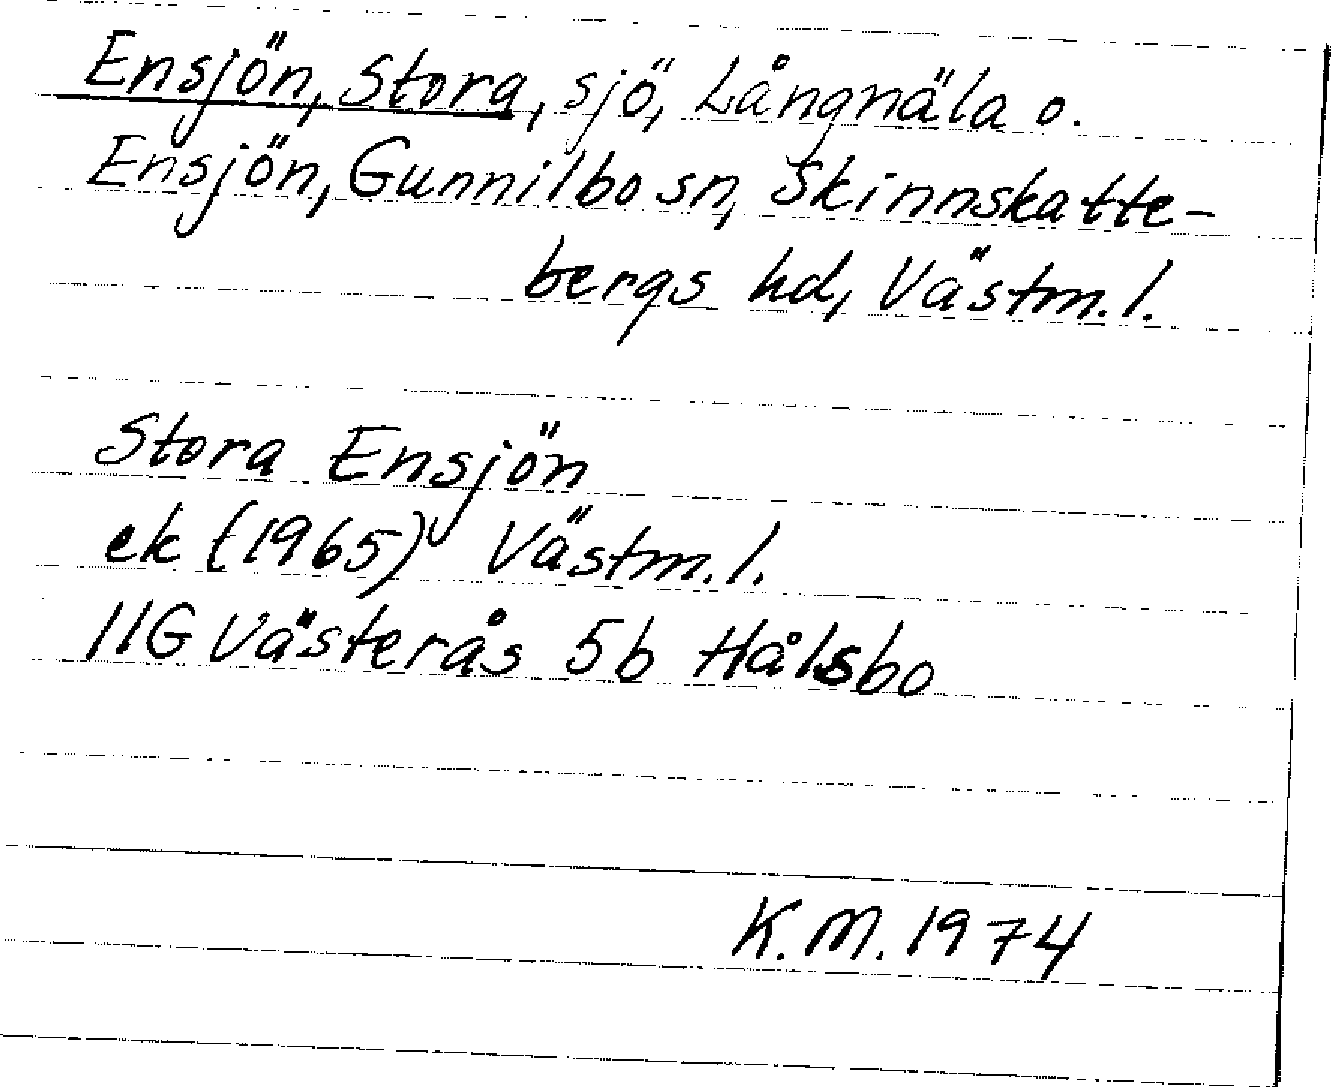 Ensjön, Stora, sjö, Långnäla o.
Ensjön, Gunnilbo sn, Skinnskatte-
bergs hd, Västm. l.
Stora Ensjön
ek (1965) Västm. l.
11G Västerås 5b Hålsbo
K. M. 1974